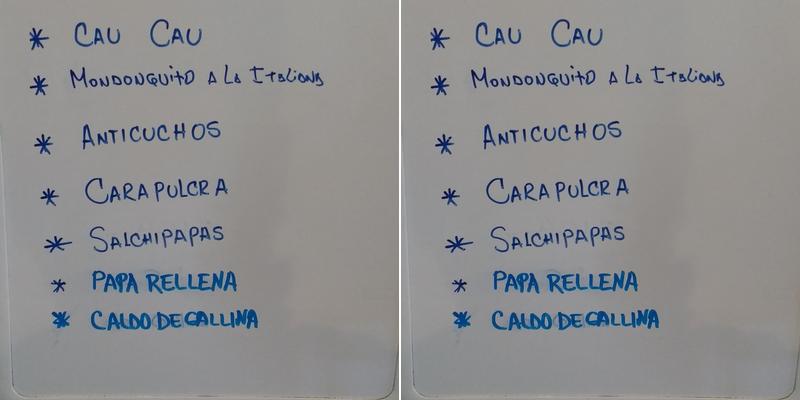 * CAU CAU
* MONDONQUITO A La ITaliana
* ANTICUCHOS
* CARAPULCRA
* SALCHIPAPAS
* PAPA RELLENA
* CALDO DE GALLINA
* CAU CAU
* MONDONQUITO A La ITaliana
* ANTICUCHOS
* CARAPULCRA
* SALCHIPAPAS
* PAPA RELLENA
* CALDO DE GALLINA